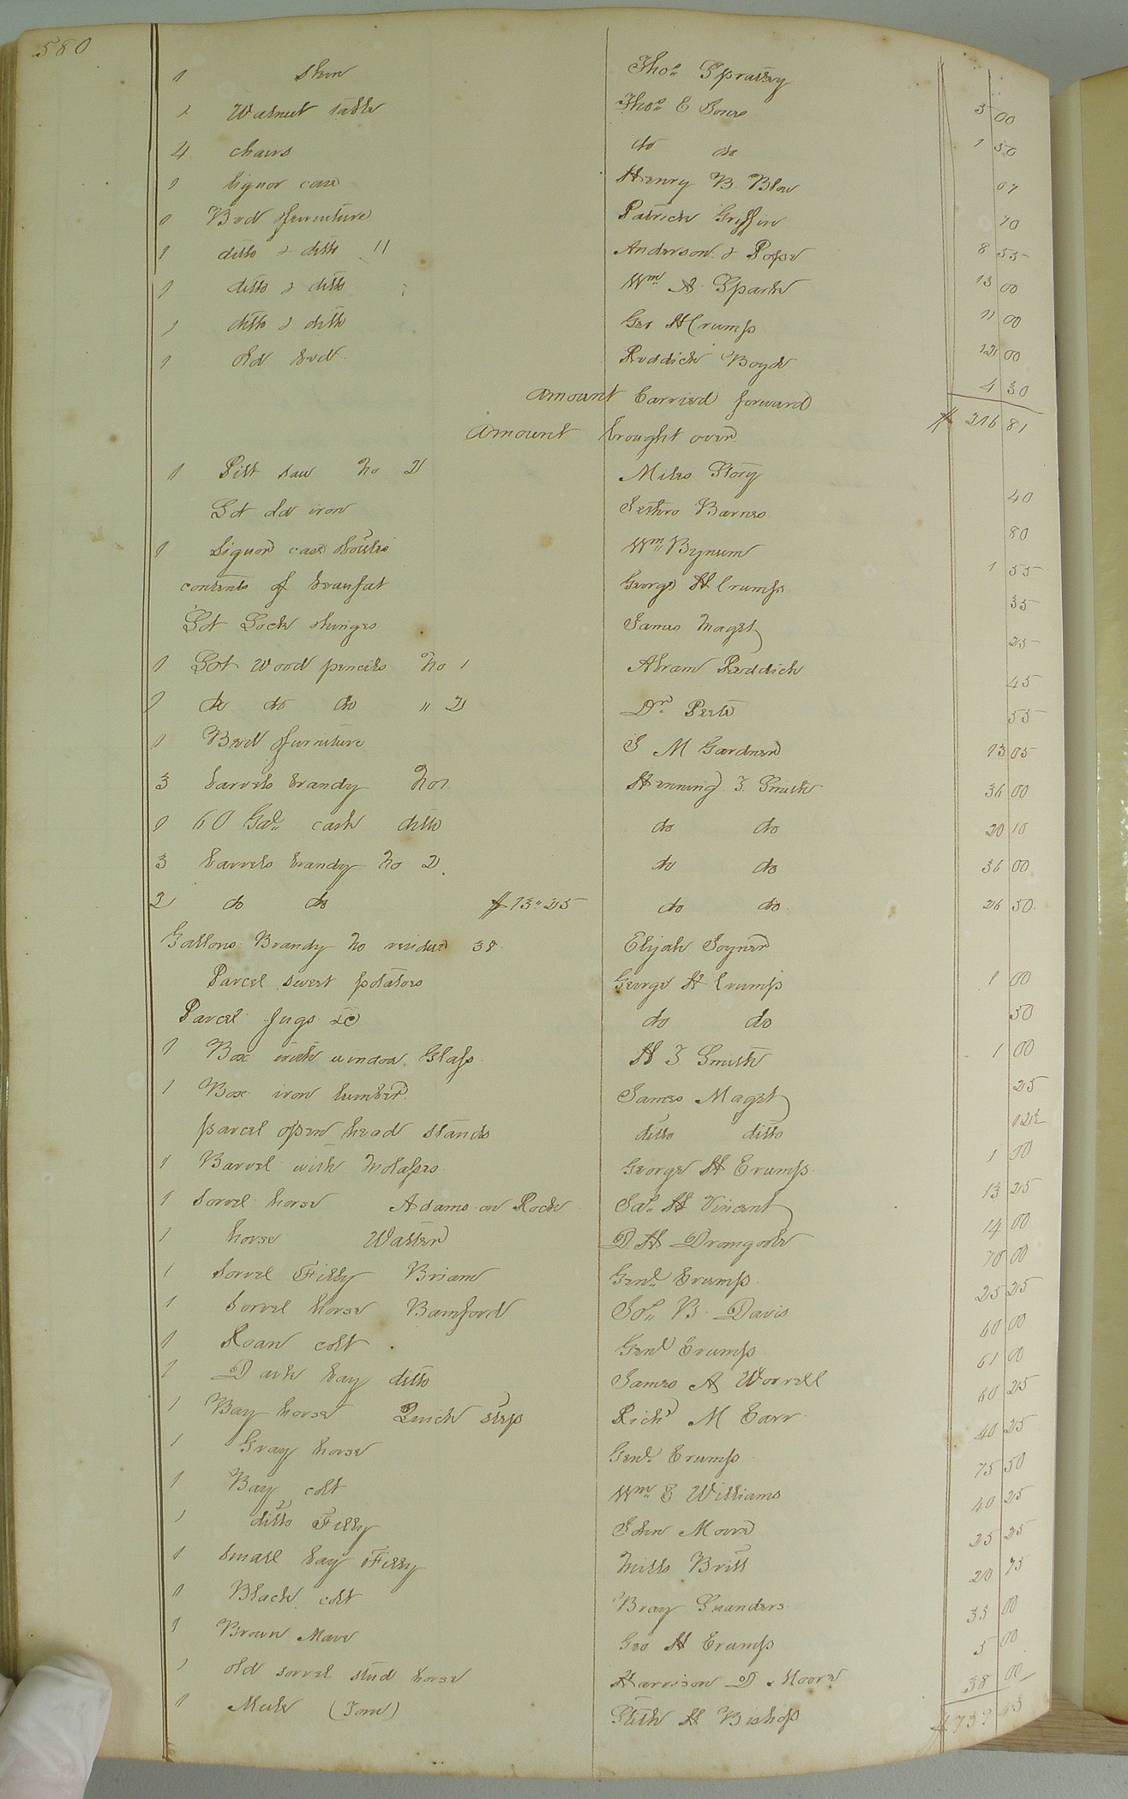 580
1 Skin Thos. Spratley
2 Walnut table Thos. E Jones 5 00
4 chairs do do 1 50
1 liquor case Henry B Blow 07
1 Bed & furniture Patrick Griffin 70
1 ditto & ditto 11 Anderson & Pope 8 55
1 ditto & ditto Wm. A Spark 13 00
1 ditto & ditto Geo H Crump 11 00
1 old bed Reddick Boyd 12 00
amount Carried forward 4 30
amount brought over $ 316 81
1 Pitt saw No 2 Miles Story
Lot old iron Jethro Barnes 40
1 Liquor case & bottles Wm. Bynum 80
contents of beaufat George H Crump 1 55
Lot Lock & hinges James Maget 35
25
1 Lot Wood pencils No 1 Abram Reddick 45
1 do do do " 2 Dr. Peete 55
1 Bed & furniture J M Gardner 13 05
3 barrels brandy No 1 Henning T Smith 36 00
1 60 Gal. cask ditto do do 20 10
3 barrels brandy No 2 do do 36 00
2 do do $13"25 do do 26 50
Gallons Brandy No residue 38 Elijah Joyner
Parcel sweet potatoes George H Crump 1 00
Parcel jugs &c do do 50
1 Box with window Glass H T Smith 1 00
1 Box iron lumber James Maget 25
parcel open head stands ditto ditto 12½
1 Barrel with Molasses George H Crump 1 00
1 Sorrel horse Adams on Rock H Vincent 13 25
1 horse Walter D H Dromgoole 14 00
1 Sorrel Filly Briam Genl. Crump 70 00
1 Sorrel horse Bamford Jos. B. Davis 25 25
1 Roan colt Genl Crump 60 00
1 Dark bay ditto James A Worrell 61 00
1 Bay horse Quick step Richd M Carr 60 25
1 Gray horse Genl. Crump 40 25
1 Bay colt Wm. E Williams 75 50
1 ditto Filly John Moore 40 25
1 Small bay Filly Mills Britt 25 25
1 Black colt Bray Saunders 20 75
1 Brown Mare Geo H Crump 33 00
1 old sorrel stud horse Harrison D. Moore 5 00
1 Mule (Tom) Stith H Bishop 38 00